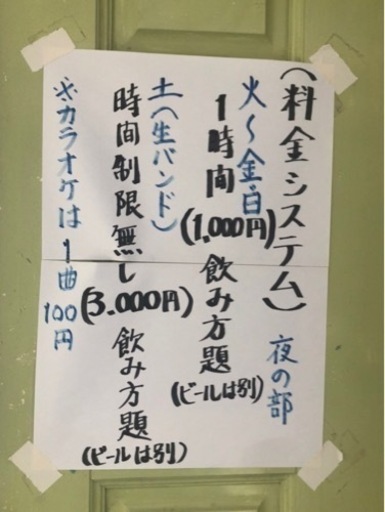 (料金システム)
夜の部
火〜金・日
1時間(1,000円)飲み方題
(ビールは別)
土(生バンド)
時間制限無し(3.000円)飲み方題
(ビールは別)
※カラオケは1曲100円